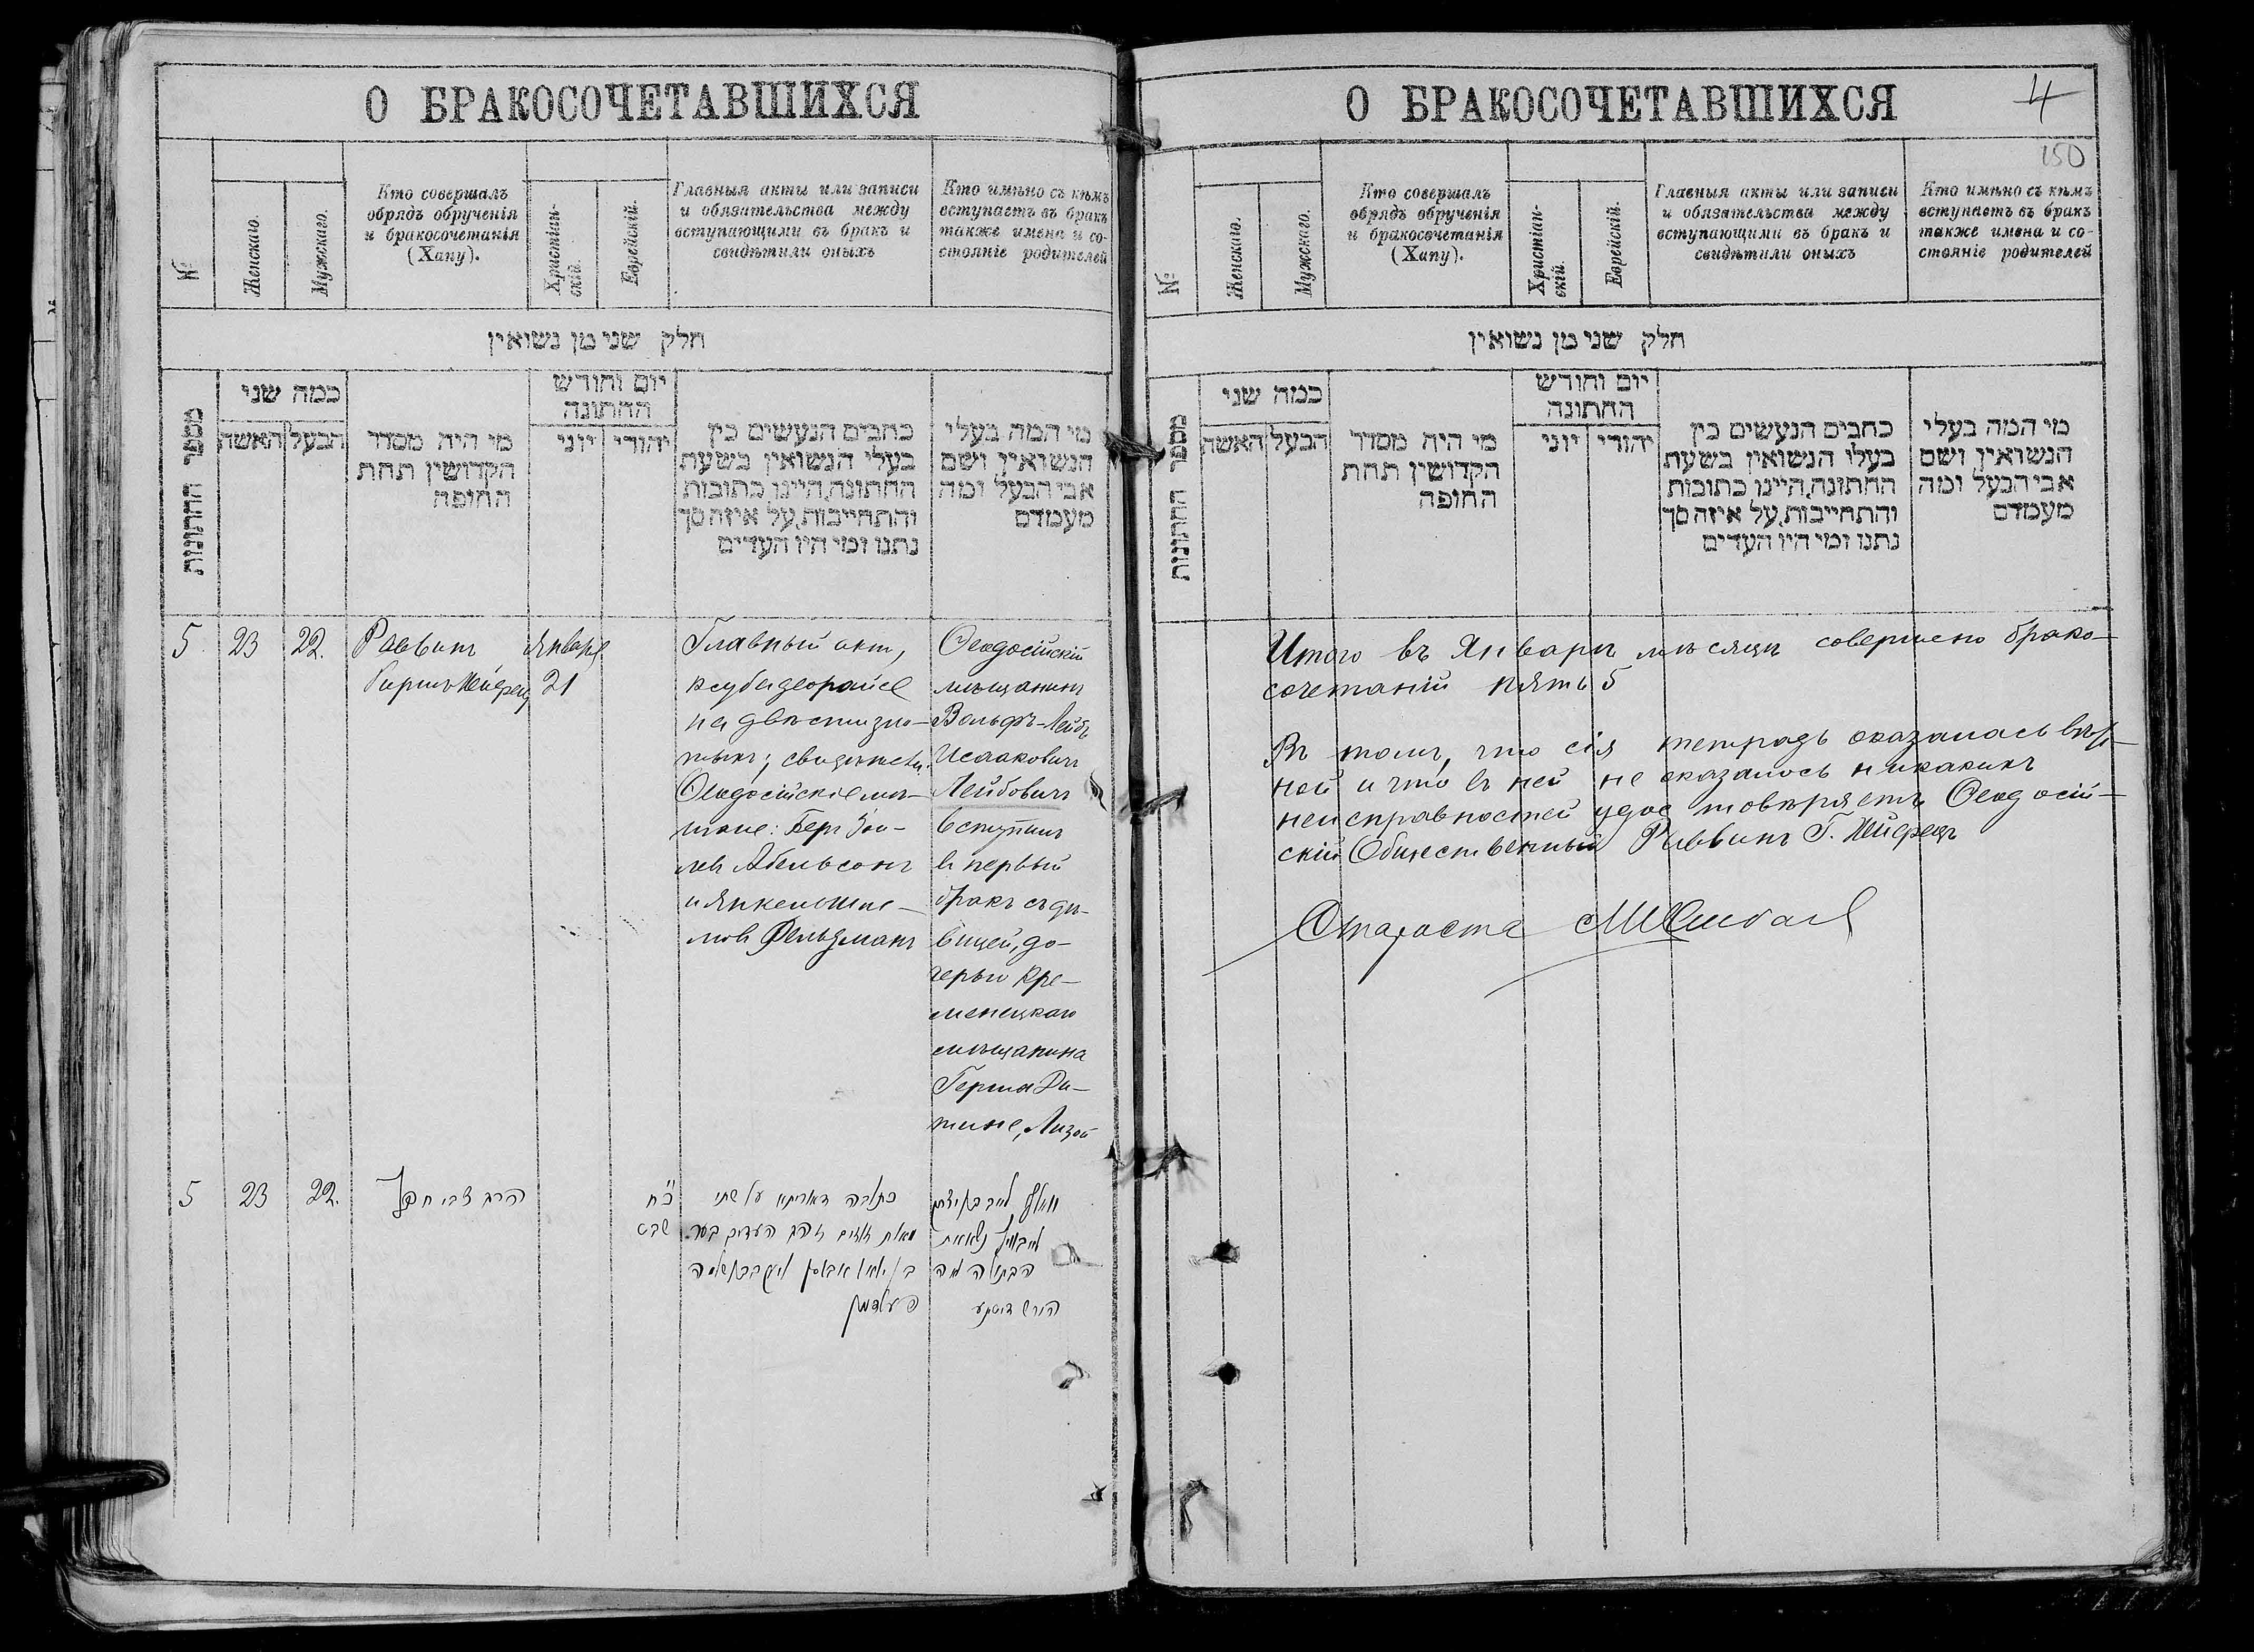 О БРАКОСОЧЕТАВШИХСЯ
№
Женскаго.
Мужскаго.
Кто совершалъ
обрядъ обрученія
и бракосочетанія
(Хапу).
Христіан-
скій.
Еврейскій.
Главныя акты или записи
и обязательства между
вступающими въ бракъ и
свидѣтили оныхъ
Кто имѣно съ кѣмъ
вступаетъ въ бракъ
также имена и со-
стояніе родителей
חלק שני מן נשואין
מספר החתונות
כמה שני
האשה
הבעל
מי היה מסדר
הקדושין תחת
החופה
יום וחודש
החתונה
יוני
יהודי
כתבים הנעשים בין
בעלי הנשואין בשעת
החתונה, היינו כתובות
והתחייבות, על איזה סך
נתנו ומי היו העדים
מי המה בעלי
הנשואין ושם
אבי הבעל ומה
מעמדם
5
23
22.
Раввинъ
Гиршъ Хейфецъ
Января
21
Главный актъ,
ксубадеорайсе
на двѣсти зло-
тыхъ; свидѣтели
Ѳеодосійскіе мѣ-
щане: Беръ
Абельсонъ
и Янкель Шле-
мовъ Фельдманъ
Ѳеодосійскій
мѣщанинъ
Вольфъ-Лейбъ
Исааковичъ
Лейбовичъ
вступилъ
въ первый
бракъ съ дѣ-
вицей, до-
черью Кре-
менецкаго
мѣщанина
Герша
Лизой
5
23
22.
הרב צבי חפץ
כ״ח
שבט
כתובה דאריתא על שתי
מאות זהובים העדים בער
פעלדמאן
וואלף לייב בן יצחק
לייבאוויץ נשא את
הבתולה ליזה
О БРАКОСОЧЕТАВШИХСЯ
4
150
№
Женскаго.
Мужскаго.
Кто совершалъ
обрядъ обрученія
и бракосочетанія
(Хапу).
Христіан-
скій.
Еврейскій.
Главныя акты или записи
и обязательства между
вступающими въ бракъ и
свидѣтили оныхъ
Кто имѣно съ кѣмъ
вступаетъ въ бракъ
также имена и со-
стояніе родителей
חלק שני מן נשואין
מספר החתונות
כמה שני
האשה
הבעל
מי היה מסדר
הקדושין תחת
החופה
יום וחודש
החתונה
יוני
יהודי
כתבים הנעשים בין
בעלי הנשואין בשעת
החתונה, היינו כתובות
והתחייבות, על איזה סך
נתנו ומי היו העדים
מי המה בעלי
הנשואין ושם
אבי הבעל ומה
מעמדם
Итого въ Январѣ мѣсяцѣ совершено брако-
сочетаній пять 5
Въ томъ, что сія тетрадь оказалась вѣр-
ной и что въ ней не оказалось никакихъ
неисправностей удостовѣряетъ Ѳеодосій-
скій Общественный Раввинъ Г. Хейфецъ
Староста